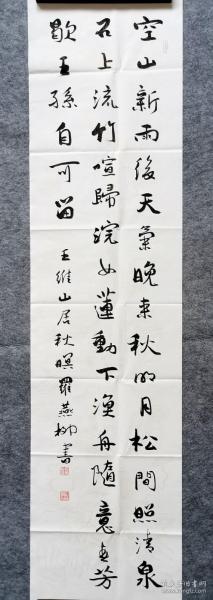 空山新雨後天氣晚来秋明月松間照清泉
石上流竹喧歸浣女蓮動下漁舟隨意春芳
歇王孫自可留
王維山居秋暝羅燕柳書